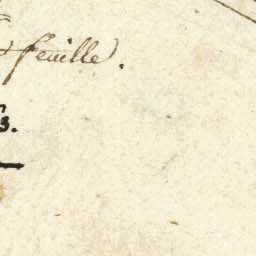 feuille.
3.